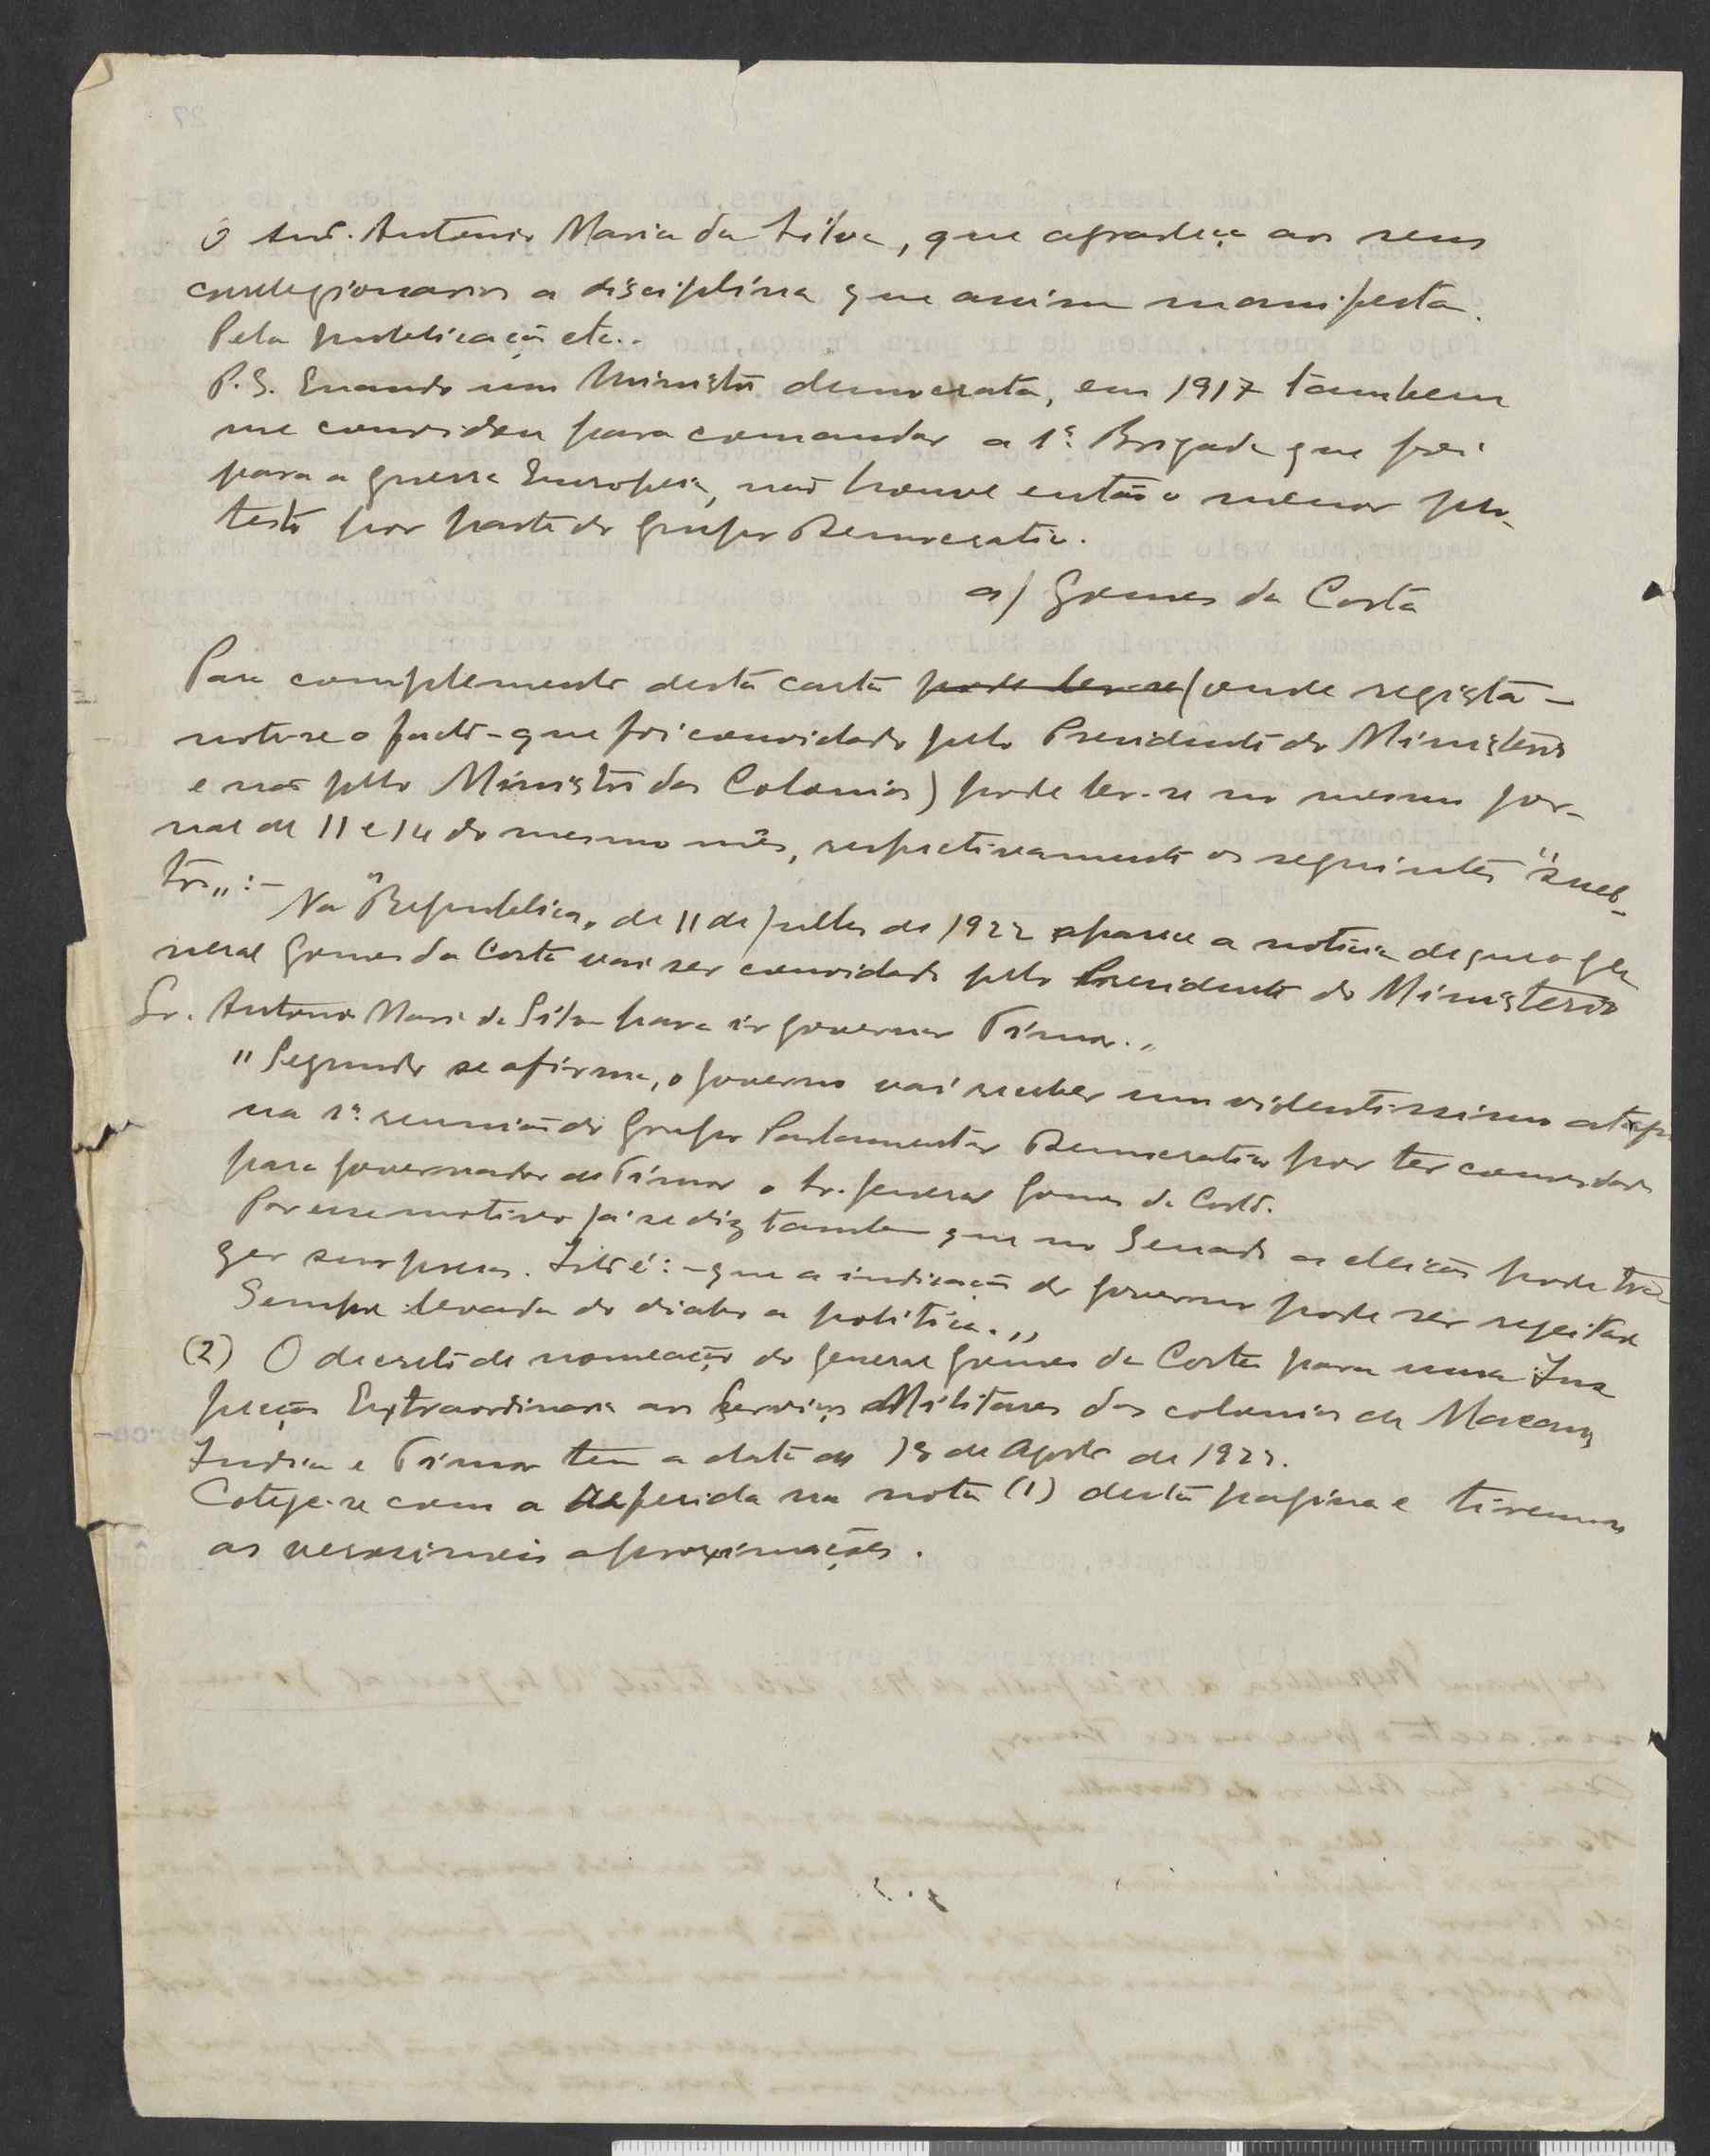 O Snr. Antonio Maria da Silva, que agradeça aos seus
correlegionarios a disciplina que assim manifesta.
Pela publicação etc..
P.S. Quando um Ministro democrata, em 1917 tambem
me convidou para comandar a 1ª Brigada que foi
para a guerra Europeia, não houve então o menor pro-
testo por parte do Grupo Democratico.
a) Gomes da Costa
Para complemento desta carta pode ler-se (onde regista-
note-se o facto - que foi convidado pelo Presidente do Ministerio
e não pelo Ministro das Colonias) pode ler-se no mesmo jor-
nal de 11 e 14 do mesmo mês, respectivamente os seguintes "suel-
tos„:- Na "Republica„ de 11 de Julho de 1922 aparece a noticia de que o ge
neral Gomes da Costa vai ser convidado pelo Presidente do Ministerio
Sr. Antonio Maria da Silva para ir governar Timor.„
"Segundo se afirma, o governo vai receber um violentissimo ataque
na 1ª reunião do Grupo Parlamentar Democratico por ter convidado
para governador de Timor o sr. general Gomes da Costa.
Por esse motivo já se diz tambem que no Senado a eleição pode tra
zer surpresas. Isto é:- que a indicação do governo pode ser rejeitada
Sempre levada do diabo a politica.„
(2) O decreto de nomeação do general Gomes da Costa para uma Ins
peção Extraordinaria aos Serviços Militares das colonias de Macau,
India e Timor tem a data de 18 de Agosto de 1922.
Coteje-se com a referida na nota (1) desta pagina e tiremos
as verosimeis aproximações.